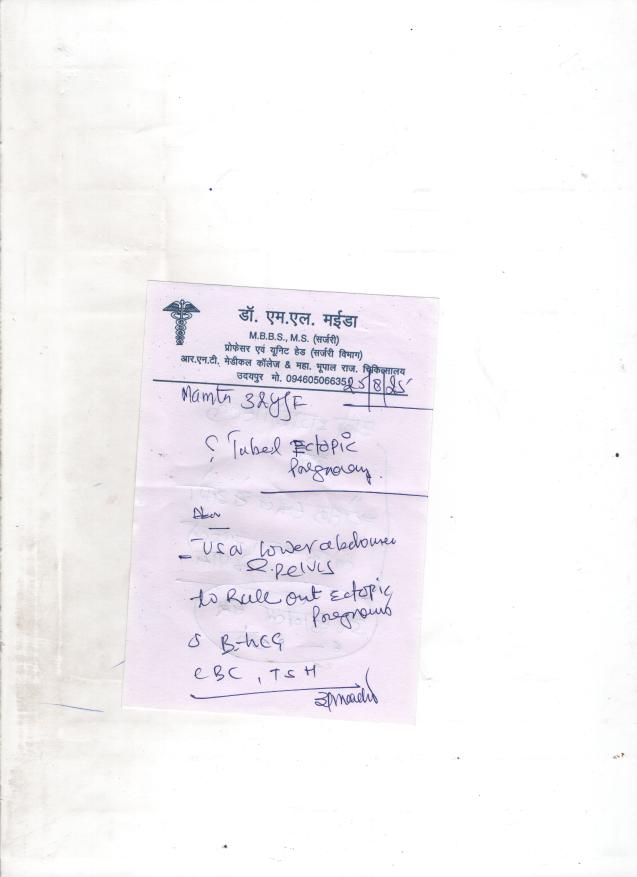 डॉ. एम.एल. मईडा
M.B.B.S., M.S. (सर्जरी)
प्रोफेसर एवं यूनिट हेड (सर्जरी विभाग)
आर.एन.टी. मेडीकल कॉलेज & महा. भूपाल राज. चिकित्सालय
उदयपुर मो. 09460506635
25/8/25
Mamta 32y/F
? Tubal Ectopic
Pregnancy.
- USG lower abdomen
& pelvis
to Rull out Ectopic
Pregnancy
S B-hCG
CBC, TSH